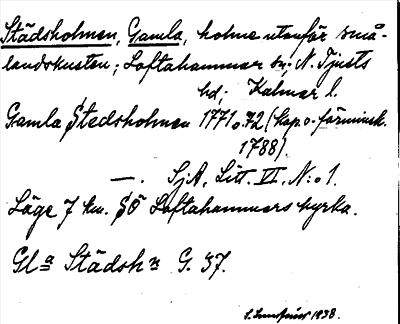 Städsholmen, Gamla, holme utanför små-
landskusten; Loftahammar sn; N. Tjusts
hd; Kalmar l.
Gamla Stedsholmen 1771 o. 72 (kap. o. förminsk.
1788).
—. SjA, Litt. VI, N:o 1.
Läge 7 km. SÖ Loftahammars kyrka.
Gla Städshn G. 37.
1938.